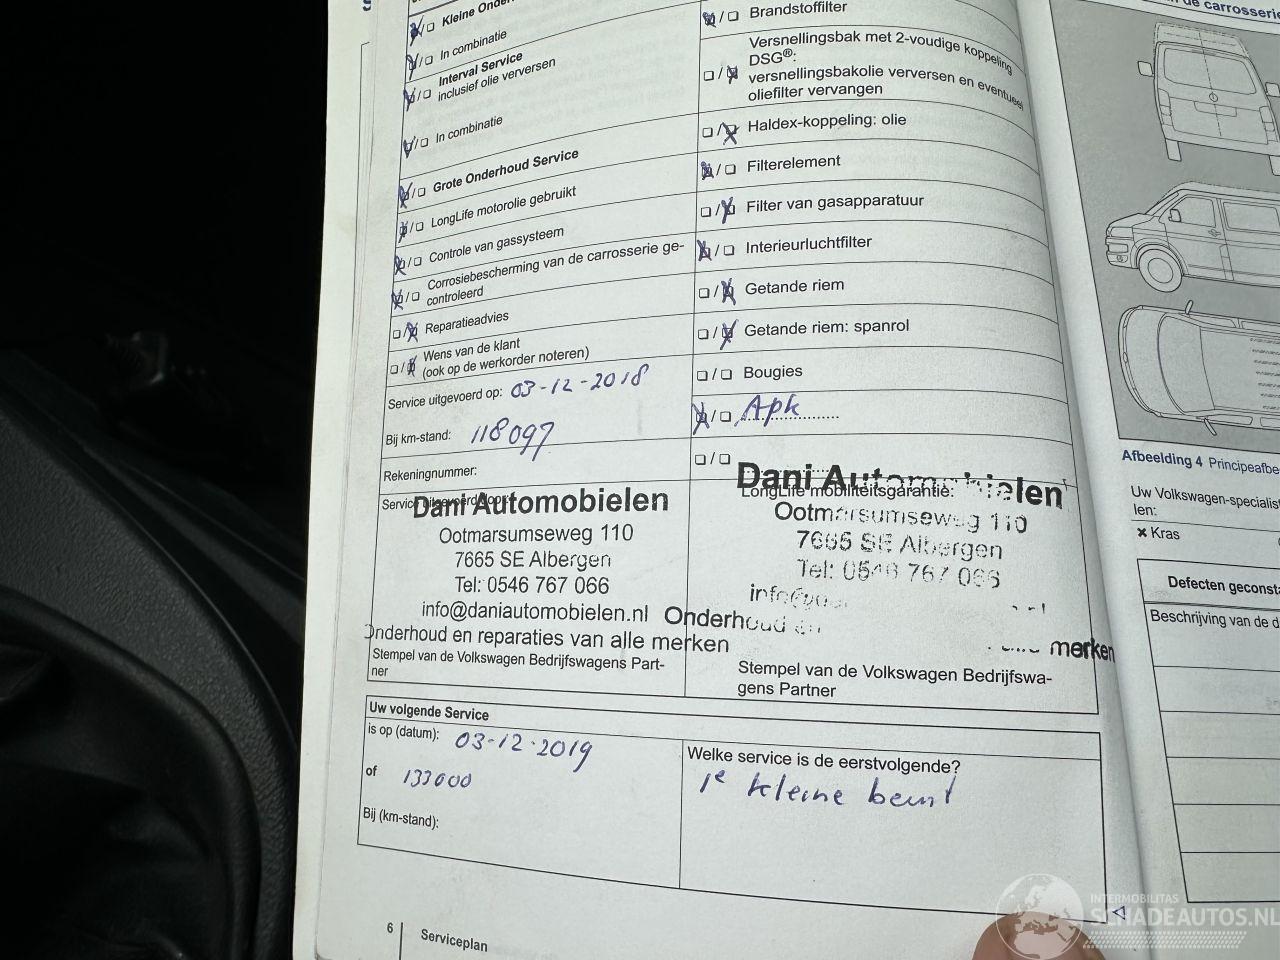 Kleine
In combinatie
Interval Service
inclusief olie verversen
In combinatie
Grote Onderhoud Service
LongLife motorolie gebruikt
Controle van gassysteem
Corrosiebescherming van de carrosserie ge-
controleerd
Reparatieadvies
Wens van de klant
(ook op de werkorder noteren)
Service uitgevoerd op: 03-12-2018
Bij km-stand: 118097
Rekeningnummer:
Service uitgevoerd door:
Dani Automobielen
Ootmarsumseweg 110
7665 SE Albergen
Tel: 0546 767 066
info@daniautomobielen.nl
Onderhoud en reparaties van alle merken
Stempel van de Volkswagen Bedrijfswagens Part-
ner
Brandstoffilter
Versnellingsbak met 2-voudige koppeling
DSG®:
versnellingsbakolie verversen en eventueel
oliefilter vervangen
Haldex-koppeling: olie
Filterelement
Filter van gasapparatuur
Interieurluchtfilter
Getande riem
Getande riem: spanrol
Bougies
Apk
LongLife mobiliteitsgarantie:
Dani Automobielen
Ootmarsumseweg 110
7665 SE Albergen
Tel: 0546 767 066
Onderhoud en
merken
Stempel van de Volkswagen Bedrijfswa-
gens Partner
Uw volgende Service
is op (datum): 03-12-2019
of 133000
Bij (km-stand):
Welke service is de eerstvolgende?
1e kleine beurt
6 Serviceplan
de carrosserie
Afbeelding 4 Principeafbe
Uw Volkswagen-specialist
len:
× Kras
Defecten geconsta
Beschrijving van de d
INTERMOBILITAS
SCHADEAUTOS.NL